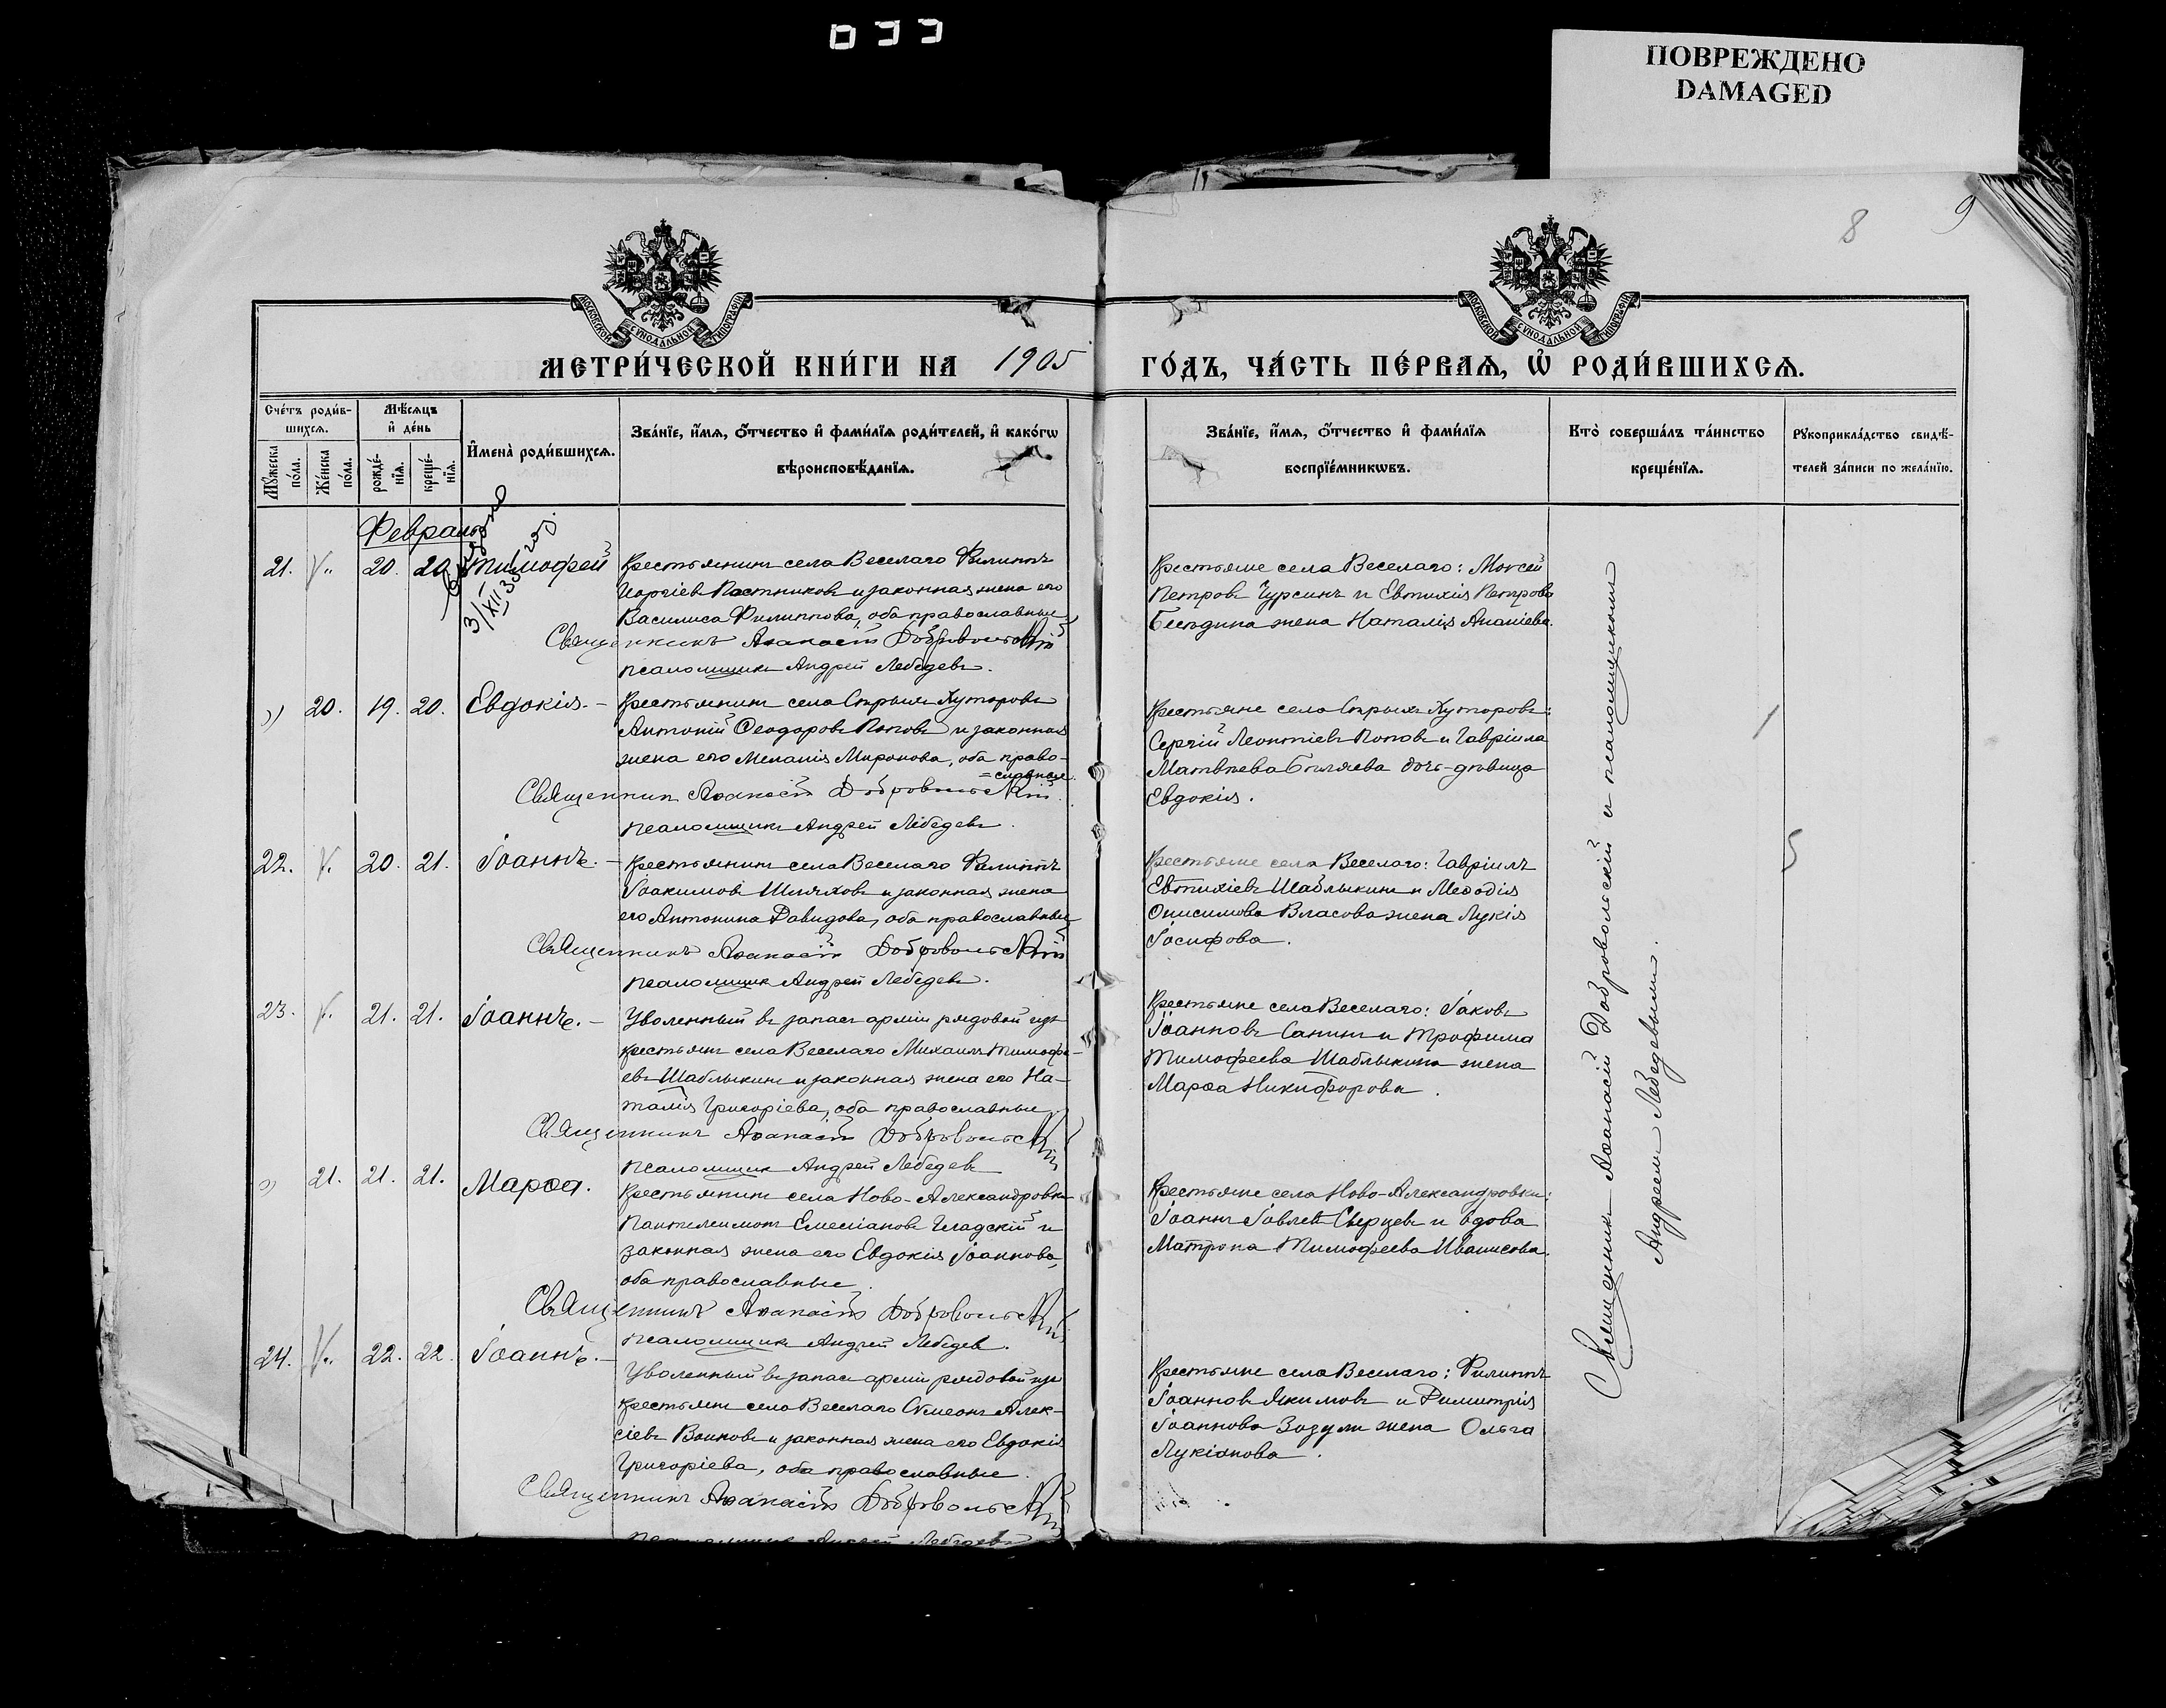 033
ПОВРЕЖДЕНО
DAMAGED
8
9
МОСКОВСКОЙ СѴНОДАЛЬНОЙ ТИПОГРАФІИ
МОСКОВСКОЙ СѴНОДАЛЬНОЙ ТИПОГРАФІИ
МЕТРИ́ЧЕСКОЙ КНИ́ГИ НА 1905 ГО́ДЪ, ЧА́СТЬ ПЕ́РВАѦ, Ѡ҆ РОДИ́ВШИХСѦ.
Сче́тъ роди́в-
шихсѧ.
Мѣ́сѧцъ
и҆ де́нь
Мꙋ́жеска
по́ла.
Же́нска
по́ла.
рожде́-
нїѧ.
креще́-
нїѧ.
И҆мена̀ роди́вшихсѧ.
Зва́нїе, и҆́мѧ, ѻ҆́тчество и҆ фами́лїѧ роди́телей, и҆ како́гѡ
вѣроисповѣ́данїѧ.
Зва́нїе, и҆́мѧ, ѻ҆́тчество и҆ фами́лїѧ
воспрїе́мникѡвъ.
Кто̀ соверша́лъ та́инство
креще́нїѧ.
Рꙋкоприкла́дство свидѣ́-
телей за́писи по жела́нїю.
Февраль
21. 20. 20. Тимофей
3/XII 35
Крестьянинъ села Веселаго Филиппъ
Георгіевъ Постниковъ и законная жена его
Василиса Филиппова, оба православные
Священникъ Аѳанасій Добровольскій
псаломщикъ Андрей Лебедевъ.
Крестьяне села Веселаго: Моѵсей
Петровъ Чурсинъ и Евтихія Петрова
Бесѣдина жена Наталія Ананіева.
20. 19. 20. Евдокія. –
Крестьянинъ села Старыхъ Хуторовъ
Антоній Ѳеодоровъ Поповъ и законная
жена его Меланія Миронова, оба право-
=славные.
Священникъ Аѳанасій Добровольскій
псаломщикъ Андрей Лебедевъ.
Крестьяне села Старыхъ Хуторовъ:
Сергій Леонтіевъ Поповъ и Гавріила
Матвѣева Бѣляева дочь-дѣвица
Евдокія.
22. 20. 21. Іоаннъ. –
Крестьянинъ села Веселаго Филиппъ
Іоакимовъ Шляховъ и законная жена
его Антонина Давидова, оба православные
Священникъ Аѳанасій Добровольскій
псаломщикъ Андрей Лебедевъ.
Крестьяне села Веселаго: Гавріилъ
Евтихіевъ Шаблыкинъ и Меѳодія
Онисимова Власова жена Лукія
Іосифова.
23. 21. 21. Іоаннъ. –
Уволенный въ запасъ арміи рядовой изъ
крестьянъ села Веселаго Михаилъ Тимофе-
евъ Шаблыкинъ и законная жена его На-
талія Григоріева, оба православные
Священникъ Аѳанасій Добровольскій
псаломщикъ Андрей Лебедевъ
Крестьяне села Веселаго: Іаковъ
Іоанновъ Санинъ и Трофима
Тимофеева Шаблыкина жена
Марѳа Никифорова.
21. 21. 21. Марѳа.
Крестьянинъ села Ново-Александровки
Пантелеимонъ Емеліановъ Гладскій и
законная жена его Евдокія Іоаннова,
оба православные.
Священникъ Аѳанасій Добровольскій
псаломщикъ Андрей Лебедевъ.
Крестьяне села Ново-Александровки:
Іоаннъ Іовлевъ Сѣрцевъ и вдова
Матрона Тимофеева Иванисова.
24. 22. 22. Іоаннъ. –
Уволенный въ запасъ арміи рядовой изъ
крестьянъ села Веселаго Сѵмеонъ Алек-
сіевъ Воиновъ и законная жена его Евдокія
Григоріева, оба православные.
Священникъ Аѳанасій Добровольскій
псаломщикъ Андрей Лебедевъ
Крестьяне села Веселаго: Филиппъ
Іоанновъ Якимовъ и Димитрія
Іоаннова Зозули жена Ольга
Лукіанова.
Священникъ Аѳанасій Добровольскій и псаломщикомъ
Андреемъ Лебедевымъ.